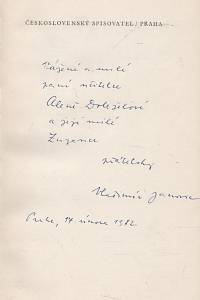 ČESKOSLOVENSKÝ SPISOVATEL/PRAHA
Vážené a milé
paní učitelce
Aleně Doleželové
a její milé
Zuzance
přátelsky
Vladimír Janovic
Praha, 14. února 1982